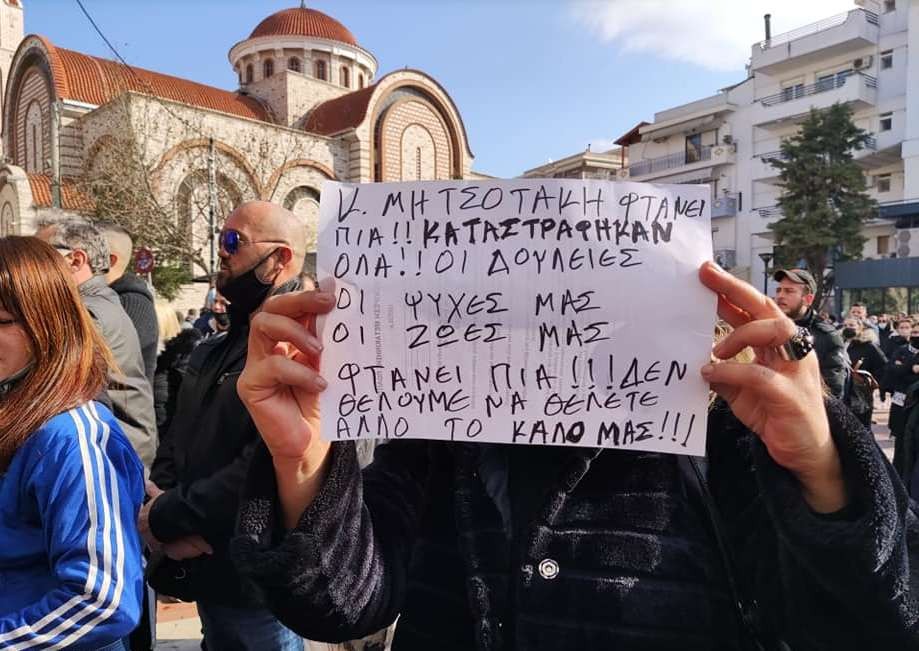 Κ. ΜΗΤΣΟΤΑΚΗ ΦΤΑΝΕΙ
ΠΙΑ!! ΚΑΤΑΣΤΡΑΦΗΚΑΝ
ΟΛΑ!! ΟΙ ΔΟΥΛΕΙΕΣ
ΟΙ ΨΥΧΕΣ ΜΑΣ
ΟΙ ΖΩΕΣ ΜΑΣ
ΦΤΑΝΕΙ ΠΙΑ!!! ΔΕΝ
ΘΕΛΟΥΜΕ ΝΑ ΘΕΛΕΤΕ
ΑΛΛΟ ΤΟ ΚΑΛΟ ΜΑΣ!!!